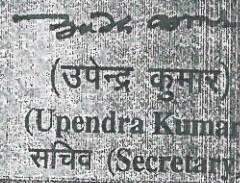 (उपेन्द्र कुमार)
(Upendra Kumar
सचिव (Secretary